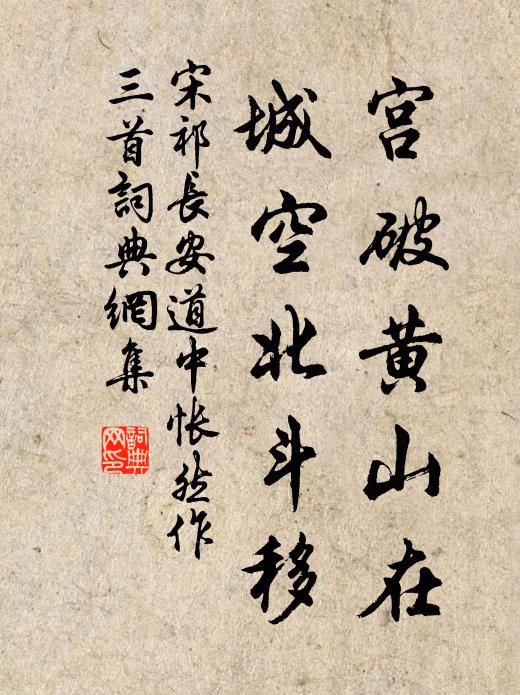 宫破黄山在
城空北斗移
宋祁長安道中悵然作
三首詞典網集
詞典
网印